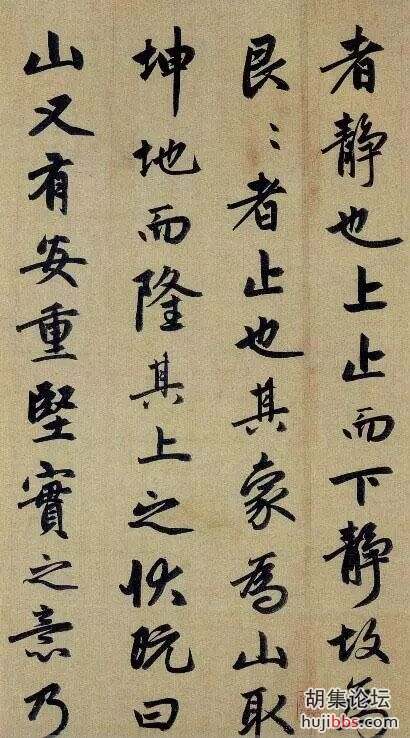 者静也上止而下静故為
艮〻者止也其象為山取
坤地而隆其上之状既曰
山又有安重堅實之意乃
胡集论坛
hujibbs.com